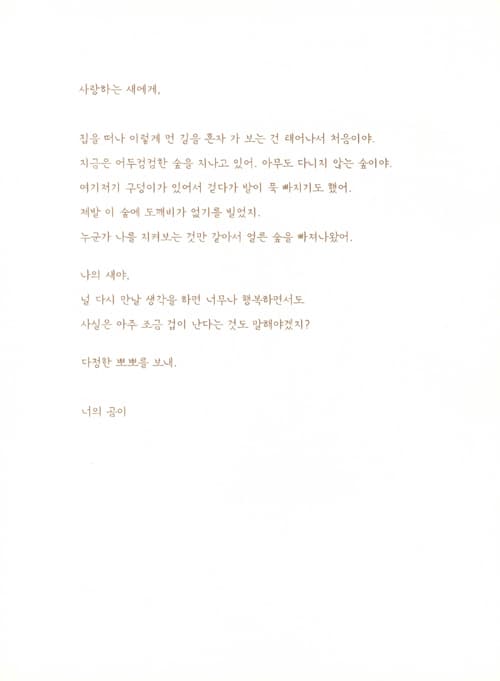 사랑하는 새에게,
집을 떠나 이렇게 먼 길을 혼자 가 보는 건 태어나서 처음이야.
지금은 어두컴컴한 숲을 지나고 있어. 아무도 다니지 않는 숲이야.
여기저기 구덩이가 있어서 걷다가 발이 푹 빠지기도 했어.
제발 이 숲에 도깨비가 없기를 빌었지.
누군가 나를 지켜보는 것만 같아서 얼른 숲을 빠져나왔어.
나의 새야,
널 다시 만날 생각을 하면 너무나 행복하면서도
사실은 아주 조금 겁이 난다는 것도 말해야겠지?
다정한 뽀뽀를 보내.
너의 곰이